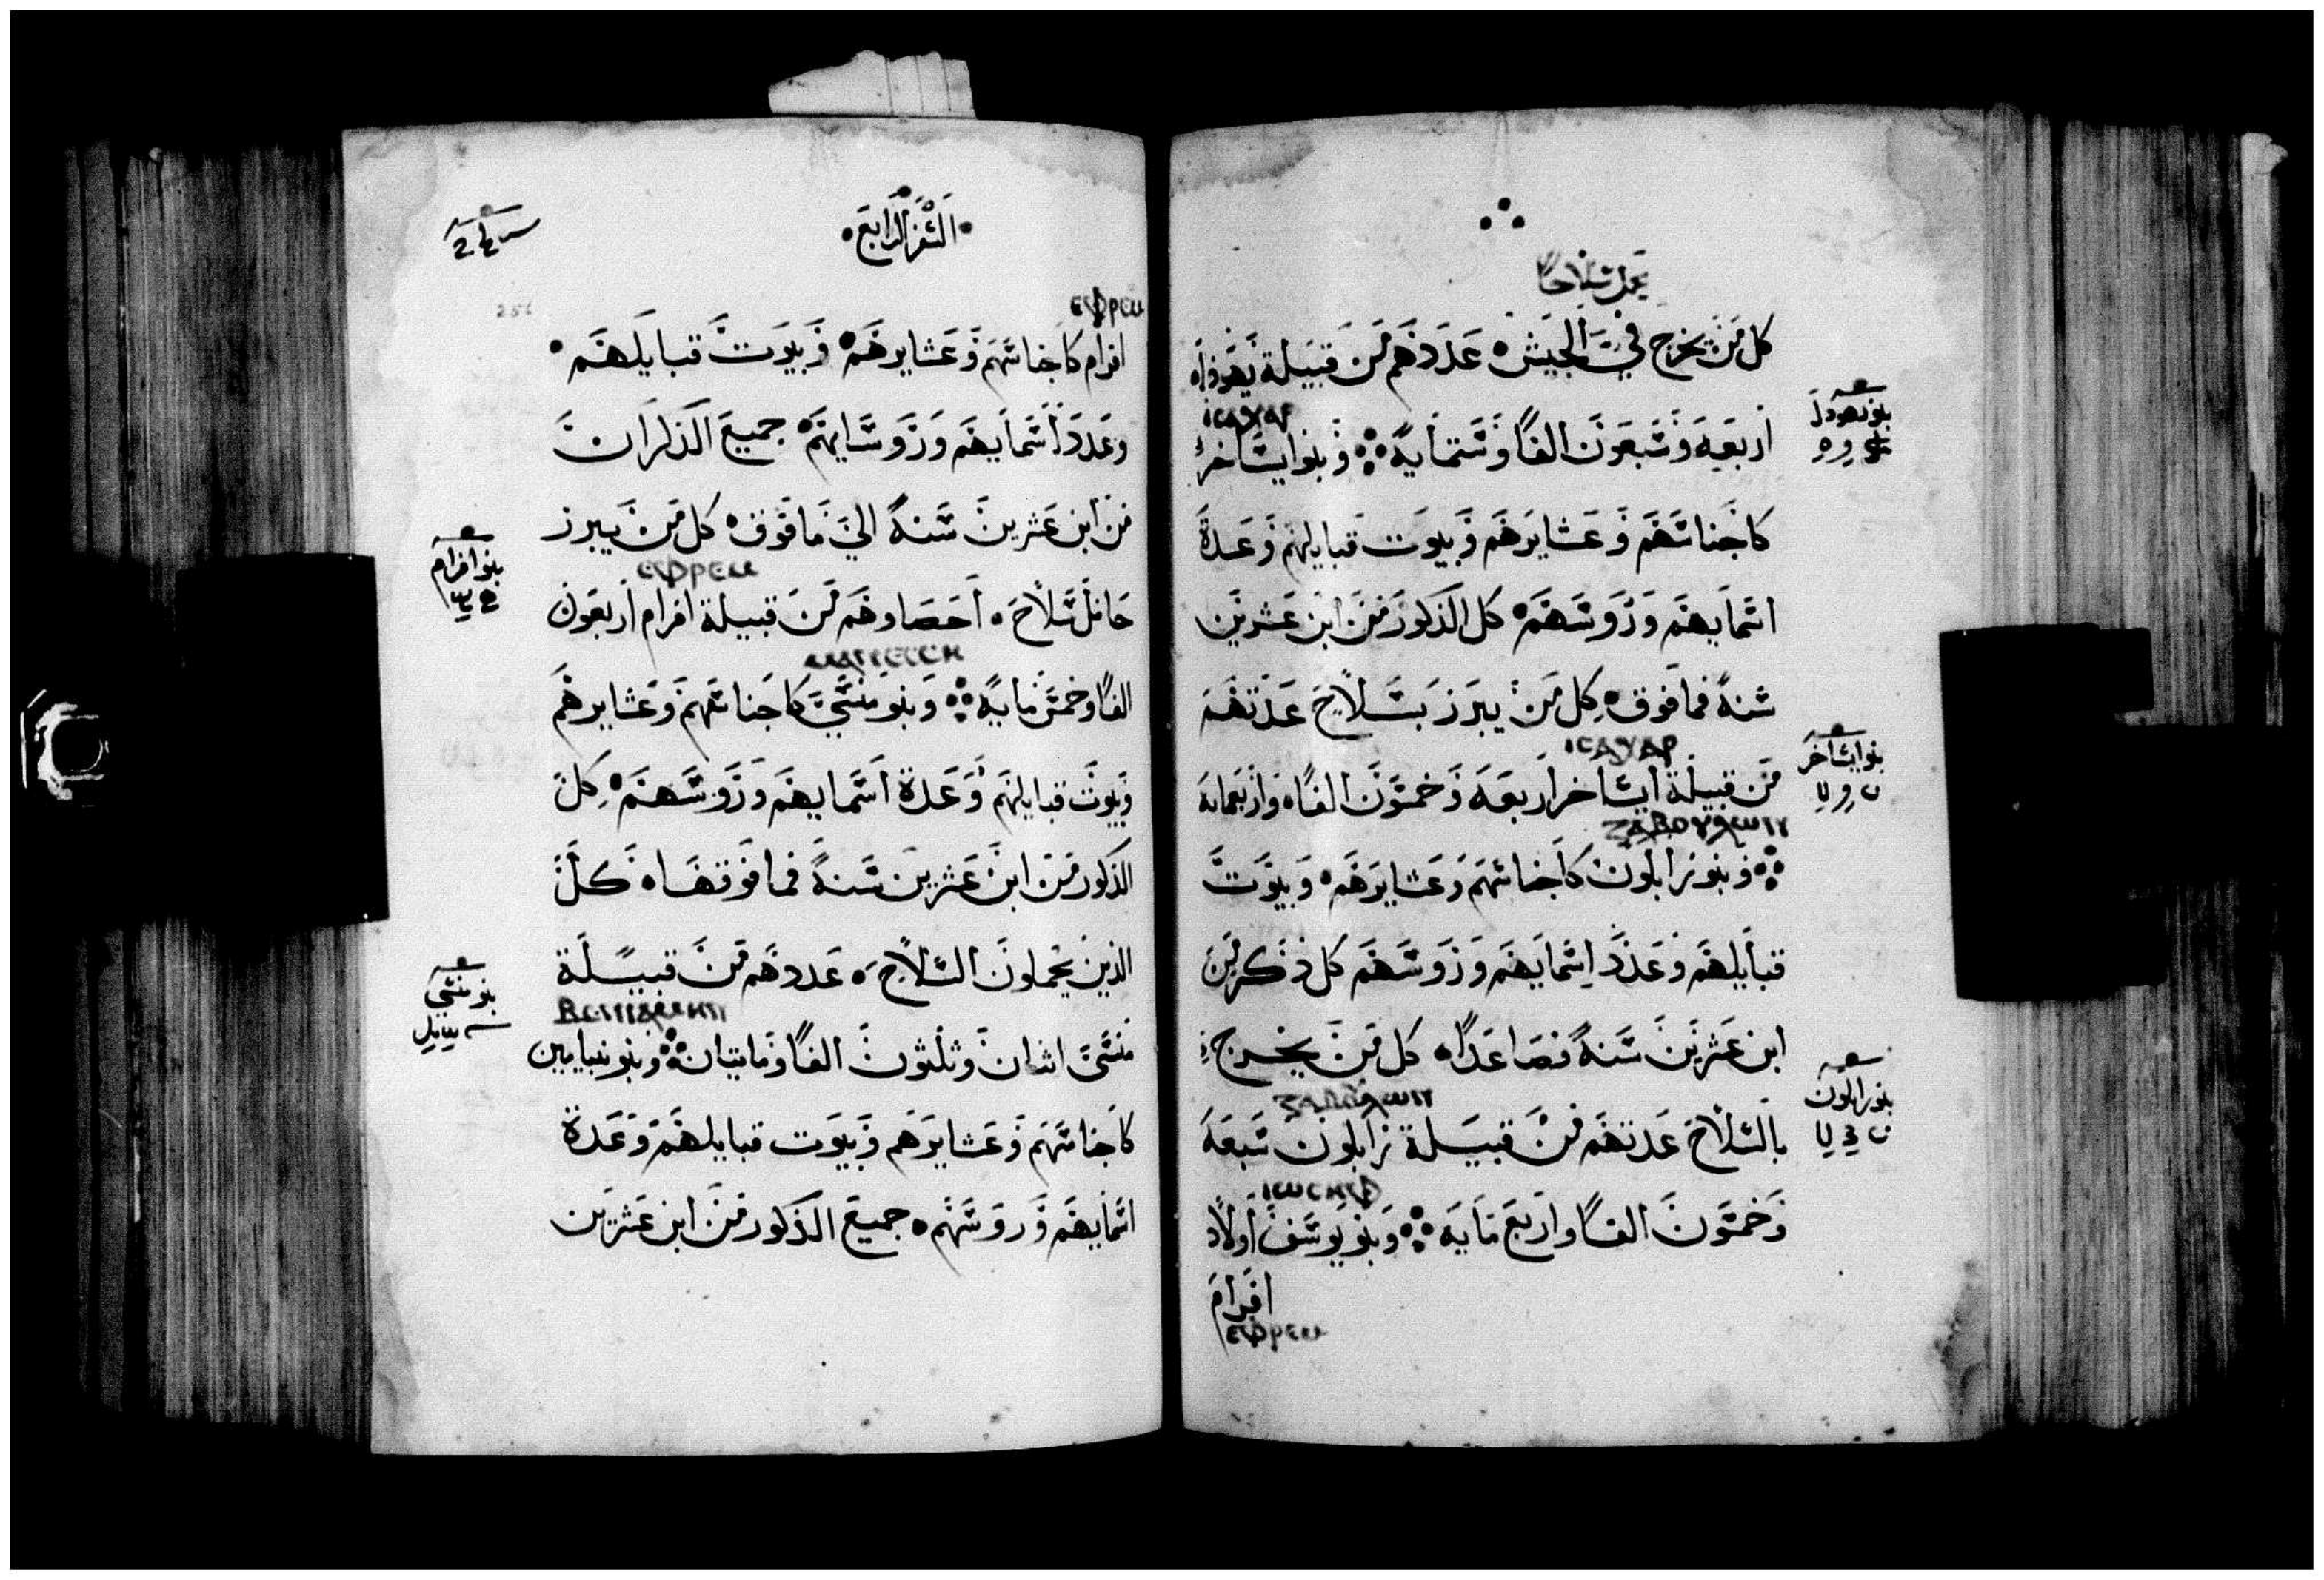 يحمل سلاحا
كل من يخرج في الجيش عددهم من قبيلة يهوذا
اربعه وسبعون الفا وستمايه ۞ وبنو ايساخر
ⲓⲥⲁⲭⲁⲣ
كاجناسهم وعشايرهم وبيوت قبايلهم وعدة
اسمايهم وروسهم كل الذكور من ابن عشرين
سنة فما فوق كل من يبرز بسلاح عدتهم
ⲓⲥⲁⲭⲁⲣ
من قبيلة ايساخر اربعه وخمسون الفا واربعمايه
ⲍⲁⲃⲟⲩⲗⲱⲛ
۞ وبنو زابلون كاجناسهم وعشايرهم وبيوت
قبايلهم وعدد اسمايهم وروسهم كل ذكر من
ابن عشرين سنة فصاعدا كل من يخرج
ⲍⲁⲃⲟⲩⲗⲱⲛ
بالسلاح عدتهم من قبيلة زابلون سبعه
ⲓⲱⲥⲏⲫ
وخمسون الفا واربع مايه ۞ وبنو يوسف اولاد
افرام
ⲉⲫⲣⲉⲙ
بنو يهودا
بنو ايساخر
بنو زابلون
السفر الرابع
ⲉⲫⲣⲉⲙ
افرام كاجناسهم وعشايرهم وبيوت قبايلهم
وعدد اسمايهم وروسايهم جميع الذكران
من ابن عشرين سنة الي ما فوق كل من يبرز
ⲉⲫⲣⲉⲙ
حامل سلاح احصاوهم من قبيلة افرام اربعون
الفا وخمس مايه ۞ وبنو منسي كاجناسهم وعشايرهم
وبيوت قبايلهم وعدة اسمايهم وروسهم كل
الذكور من ابن عشرين سنة فما فوقها كل
الذين يحملون السلاح عددهم من قبيلة
ⲃⲉⲛⲓⲁⲙⲏⲛ
منسي اثنان وثلثون الفا ومايتان ۞ وبنو بنيامين
كاجناسهم وعشايرهم وبيوت قبايلهم وعدة
اسمايهم وروسهم جميع الذكور من ابن عشرين
بنو افرام
بنو منسي